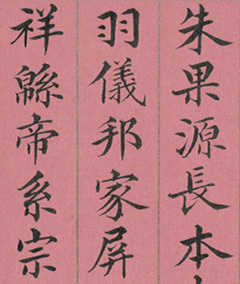 朱果源長本
羽儀邦家屏
祥緜帝系宗